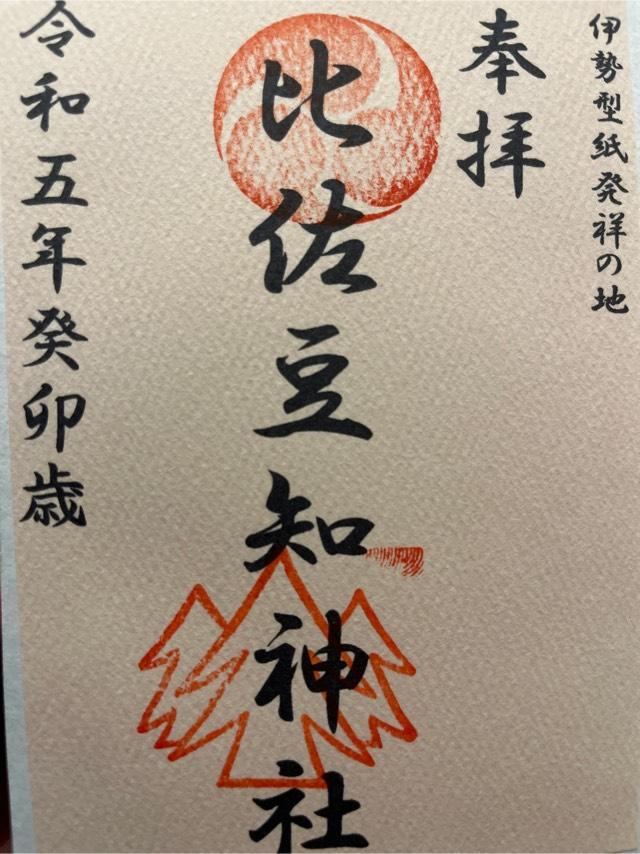 伊勢型紙発祥の地
奉拝
比佐豆知神社
令和五年癸卯歳